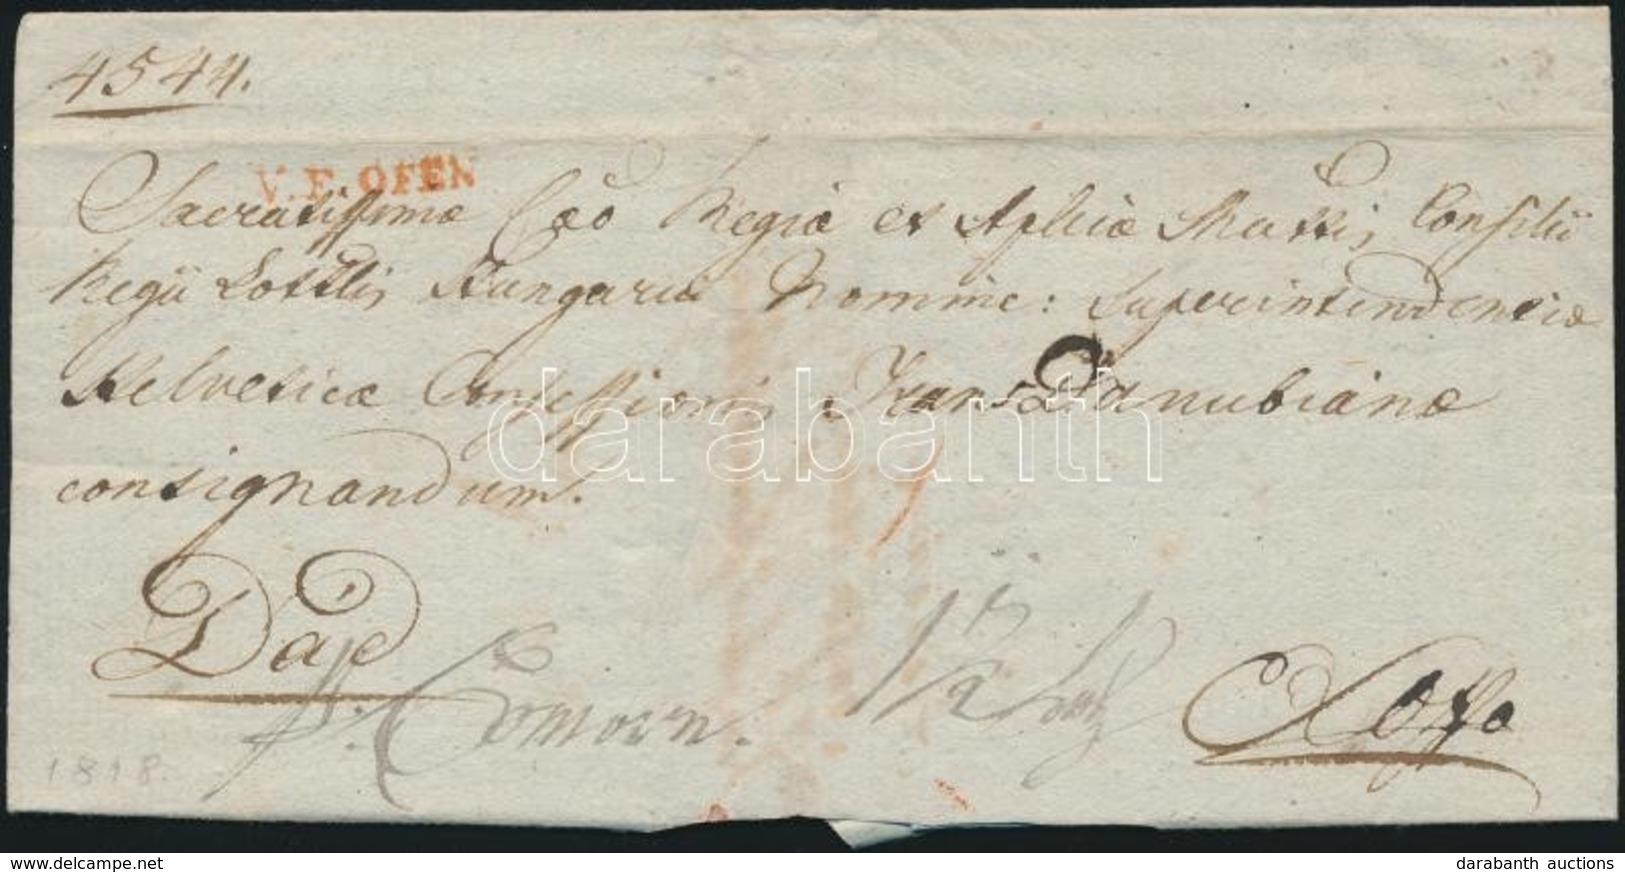 4544.
V. F. OFEN
Sacratissimae Caeo Regiae et Aplicae Mattis Consilii
Regii Lottlis Hungariae Nomine: Superintendentiae
Helveticae Confessionis TransDanubianae
consignandum.
darabanth
Dad
p. Comorn.
Exoffo
1818.
www.delcampe.net
darabanth auctions